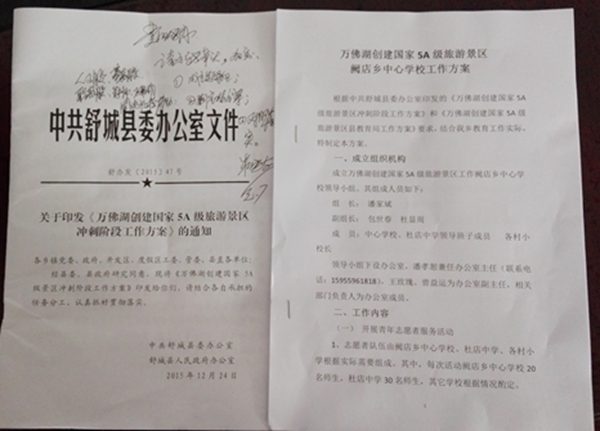 中共舒城县委办公室文件
舒办发〔2015〕47号
关于印发《万佛湖创建国家5A级旅游景区
冲刺阶段工作方案》的通知
各乡镇党委、政府,开发区、度假区工委、管委,县直各单位:
经县委、县政府研究同意,现将《万佛湖创建国家5A
级景区冲刺阶段工作方案》印发给你们,请结合各自承担的
任务分工,认真抓好贯彻落实。
中共舒城县委办公室
舒城县人民政府办公室
2015年12月24日
万佛湖创建国家5A级旅游景区
阙店乡中心学校工作方案
根据中共舒城县委办公室印发的《万佛湖创建国家5A
级旅游景区冲刺阶段工作方案》和《万佛湖创建国家5A级
旅游景区县教育局工作方案》要求,结合我乡教育工作实际,
特制定本方案。
一、成立组织机构
成立万佛湖创建国家5A级旅游景区工作阙店乡中心学
校领导小组,其组成人员如下:
组 长:潘家斌
副组长:包世春 杜显周
成 员:中心学校、杜店中学领导班子成员 各村小
校长
领导小组下设办公室,潘孝胞兼任办公室主任(联系电
话:15955961818)、王玫瑰、曾益运为办公室副主任,相关
部门负责人为办公室成员。
二、工作内容
(一)开展青年志愿者服务活动
1、志愿者队伍由阙店乡中心学校、杜店中学、各村小
学根据实际需要组成,其中,每次活动阙店乡中心学校20
名师生,杜店中学30名师生,其它学校根据情况酌定。
1